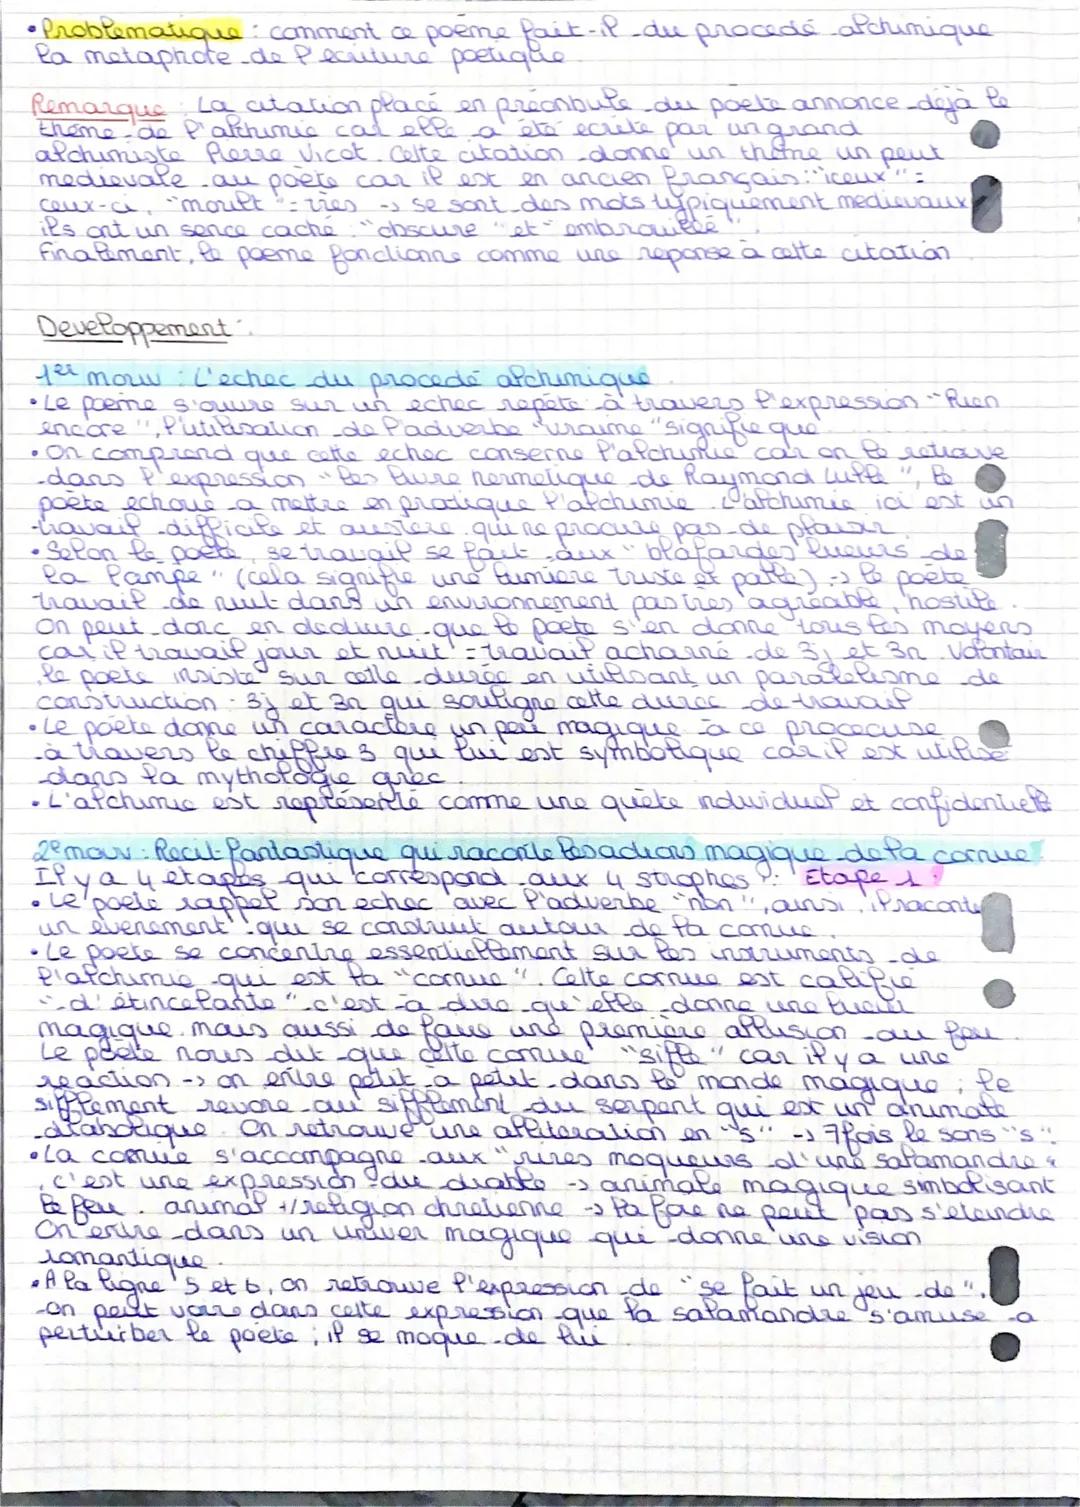 • Problematique : comment ce poème fait-il du procedé alchimique
la metaphote de l'ecriture poetique
Remarque : La citation placé en préanbule du poète annonce déjà le
thème de l'alchimie car elle a été ecrite par un grand
alchimiste Pierre Vicot. Cette citation donne un thème un peut
medievale au poète car il est en ancien français : "iceux" =
ceux-ci, "moult" = très -> se sont des mots typiquement medievaux
ils ont un sence caché : "obscure" et "embrouillé".
Finalement, le poeme fonctionne comme une reponse à cette citation
Developpement :
1er mouv : L'echec du procedé alchimique.
• Le poeme s'ouvre sur un echec repété à travers l'expression "Rien
encore", l'utilisation de l'adverbe "vraime" signifie que
• On comprend que cette echec conserne l'alchimie car on le retrouve
dans l'expression "les livre hermetique de Raymond Lulle", le
poète echoue a mettre en pratique l'alchimie. L'alchimie ici est un
travail difficile et austère qui ne procure pas de plaisir.
• Selon le poète, se travail se fait aux "blafardes lueurs de
la lampe" (cela signifie une lumiere triste et palle) -> le poète
travail de nuit dans un environnement pas très agréable, hostile.
On peut donc en deduire que le poète s'en donne tous les moyens
car il travail jour et nuit = travail acharné de 3j et 3n. Volontair
le poète insiste sur cette durée en utilisant un paralelisme de
construction : 3j et 3n qui souligne cette durée de travail
• Le poète donne un caractère un peu magique à ce procecuse
à travers le chiffre 3 qui lui est symbolique car il est utilisé
dans la mythologie grec.
• L'alchimie est représenté comme une quète individuel et confidentiel
2e mouv : Recit fantastique qui raconte les actions magique de la cornue
Il y a 4 étapes qui correspond aux 4 strophes : Etape 1 :
• Le poète rappel son echec avec l'adverbe "non", ainsi, il raconte
un evenement qui se construit autour de la cornue.
• Le poete se concentre essentiellement sur les instruments de
l'alchimie qui est la "cornue". Cette cornue est califié
"d'étincelante" c'est-à-dire qu'elle donne une lueur
magique mais aussi de faire une première allusion au feu.
Le poète nous dit que cette cornue "siffla" car il y a une
reaction -> on entre petit à petit dans le monde magique ; le
sifflement revore au sifflement du serpent qui est un animale
diabolique. On retrouve une alliteration en "s" -> 7 fois le sons "s".
• La cornue s'accompagne aux "rires moqueurs d'une salamandre"
, c'est une expression du diable -> animale magique simbolisant
le feu. animal +/religion chretienne -> la foie ne peut pas s'eteindre
On entre dans un univer magique qui donne une vision
romantique.
• A la ligne 5 et 6, on retrouve l'expression de "se fait un jeu de".
on peut voire dans cette expression que la salamandre s'amuse a
perturber le poète ; il se moque de lui